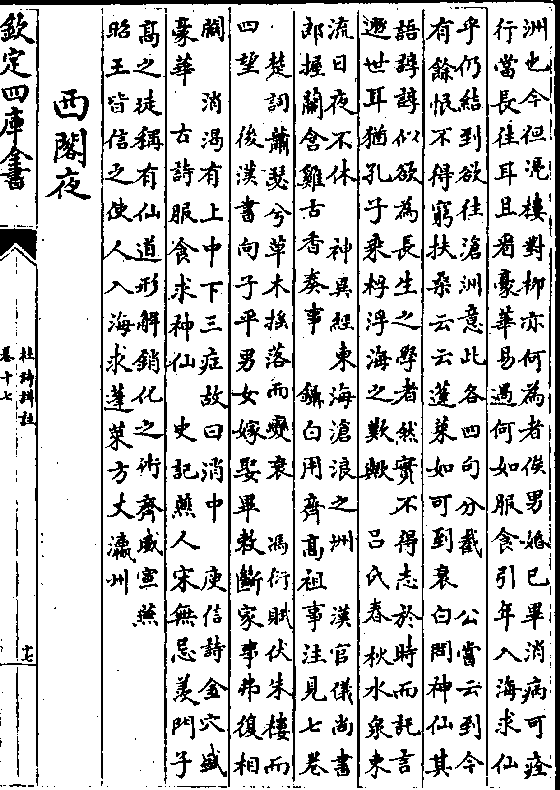 洲也今但淹樓對柳亦何為者俟男婚已畢消病可痊
行當長往耳且看豪華易過何如服食引年入海求仙
乎仍結到欲往滄洲意此各四句分截　公嘗云到今
有餘恨不得窮扶桑云云蓬萊如可到衰白問神仙其
語諄諄似欲為長生之學者然實不得志於時而託言
遯世耳猶孔子乘桴浮海之歎歟　呂氏春秋水泉東
流日夜不休　神異經東海滄浪之洲　漢官儀尚書
郎握蘭含雞舌香奏事　鑷白用齊高祖事注見七卷
楚詞蕭瑟兮草木搖落而變衰　馮衍賦伏朱樓而
四望　後漢書向子平男女嫁娶畢敕斷家事弗復相
關　消渴有上中下三症故曰消中　庾信詩金穴盛
豪華　古詩服食求神仙　史記燕人宋無忌羨門子
高之徒稱有仙道形解銷化之術齊威宣燕
昭王皆信之使人入海求蓬萊方丈瀛州
西閣夜
欽定四庫全書
杜詩攟
卷十七
十七